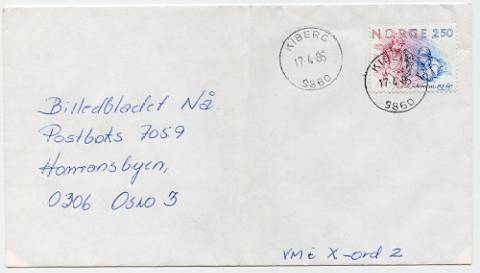 KIBERG
17-4-85
9860
NORGE 250
KIBERG
17-4-85
9860
Billedbladet Nå
Postboks 7059
Homansbyen,
0306 Oslo 3
VM i X-ord 2